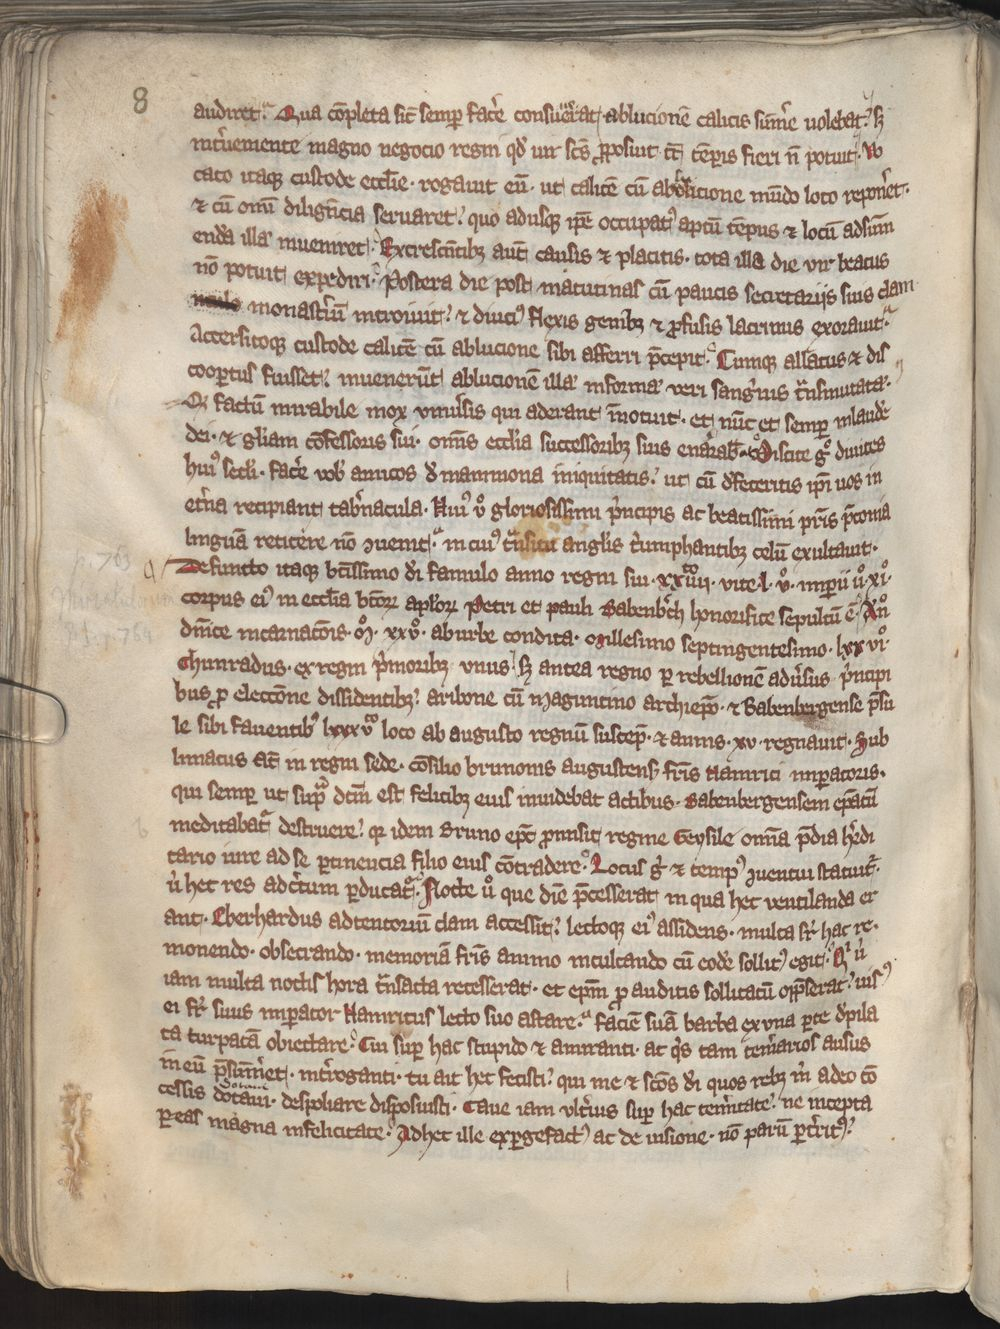 8
audiret. Qua cōpleta sic̄ semp̄ facꝰe consueūat ablucionē calicis sum̄e uolebat. sꝫ
int̄ueniente magno negocio regni qd̓ uir sc̄s ꝓposuit tc̄ tēpꝛis fieri n̄ potuit. Vo
cato itaqꝫ custode eccl̄ie. rogauit eū. ut calicē cū ablucione mūdo loco repon̄et.
⁊ cū omī dilign̄cia seruaret. quo adusqꝫ ip̄e occupatꝰ aptū tēpus ⁊ locū adsum̄
enda illā inueniret. Excrescētibꝫ aut̄ causis ⁊ placitis. tota illa die vir beatus
nō potuit expediri. Postera die post matutinas cū paucis secretarijs suis clam
monast̄iū introiuit. ⁊ diuciꝰ flexis genibꝫ ⁊ ꝓfusis lacrimis exorauit.
Accersitoqꝫ custode calicē cū ablucione sibi afferri p̄cepit. Cumqꝫ allatus ⁊ dis
coop̄tus fuisset. inuenerūt ablucionē illā informā veri sanguīs t̄nsmutatā.
Qꝫ factū mirabile mox vniūsis qui aderant īnotuit. et nūc et semp̄ inlaudē
dei. ⁊ gl̄iam cōfessoris sui. omīs eccl̄ia successoribꝫ suis enarrab̄. Discite gͦ diuites
huiꝰ secl̄i. facꝰe vob̄ amicos d̄ mammona iniquitatis. ut cū defeceritis ip̄i uos in
et̄na recipiant tab̄nacula. Huiꝰ vͦ gloriosissimi p̄ncipis ac beatissimi pr̄is p̄conia
linguā reticere nō ꝯuenit. in cuiꝰ t̄nsitu anglis t̄umphantibꝫ celū exultauit.
Defuncto itaqꝫ bt̄issimo dī famulo anno regni sui. xxiiii. vite. l. vͦ. imp̄ii uͦ. xiͦ.
corpus eiꝰ in eccl̄ia bt̄oꝝ apl̄oꝝ Petri et pauli Babenb̄ch honorifice sepultū ē. Anͦ
dn̄ice incarnac̄ois. Mͦ. xxvͦ. ab urbe condita. Millesimo septingentesimo. lxxviͦ.
Chunradus. ex regni p̄moribꝫ vnus. sꝫ antea regno ꝑ rebellionē adūsus p̄ncipi
bus ꝓ electōne dissidentibꝫ. aribone cū Maguntino archiep̄o. ⁊ Babenbergense p̄su
le sibi fauentibꝰ lxxxvͦ loco ab augusto regnū suscep̄. ⁊ annis. xv. regnauit. Sub
limatus aūt in regni sede. cōsilio brunonis augustens̄. fr̄is Hainrici imp̄atoris.
qui semp̄ ut sup̄ dc̄m est felicibꝫ eius inuidebat actibus. Babenbergensem ep̄atū
meditabat̄ destruere. qꝛ idem Bruno ep̄c ꝓmisit regine Geysile om̄ia p̄dia h̄edi
tario iure ad se ꝑtinencia filio eius cōtradere. Locus gͦ ⁊ tempꝰ ꝯuentui statuit̄.
ū hec res adc̄tum ꝑducat̄. Nocte uͦ que diē p̄cesserat in qua hec ventilanda er
ant. Eberhardus adtentoriū clam accessit. lectoqꝫ eiꝰ assidens. multa sr̄ hac re.
monendo. obsecrando. memoriā fr̄is animo inculcando cū eodē sollitꝰ egit. Q̄ ū
iam multa noctis hora t̄nsacta recesserat. et ep̄m ꝓ auditis sollicitatū opp̄serat. uisꝰ
ei fr̄ suus imp̄ator Hainricus lecto suo astare. faciē suā barba ex vna ꝑte d̄pila
ta turpatā obiectare. Cui sup̄ hac stupido ⁊ amiranti. ac qͥs tam tem̄arios ausus
in eū p̄sum̄et. int̄roganti. tu ait hec fecisti. qui me ⁊ sc̄os dī quos rebꝫ m̄ adeo cō
cessis dotaui. despoliare disposuisti. Caue iam vlt̄ius sup̄ hac tem̄itate. ne incepta
ꝑ eas magna infelicitate. Adhec ille exp̄gefactꝰ ac de uisione. nō parū ꝑt̄ritꝰ.